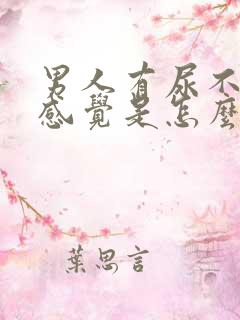 男人有尿不
感覺是怎麼
葉思言